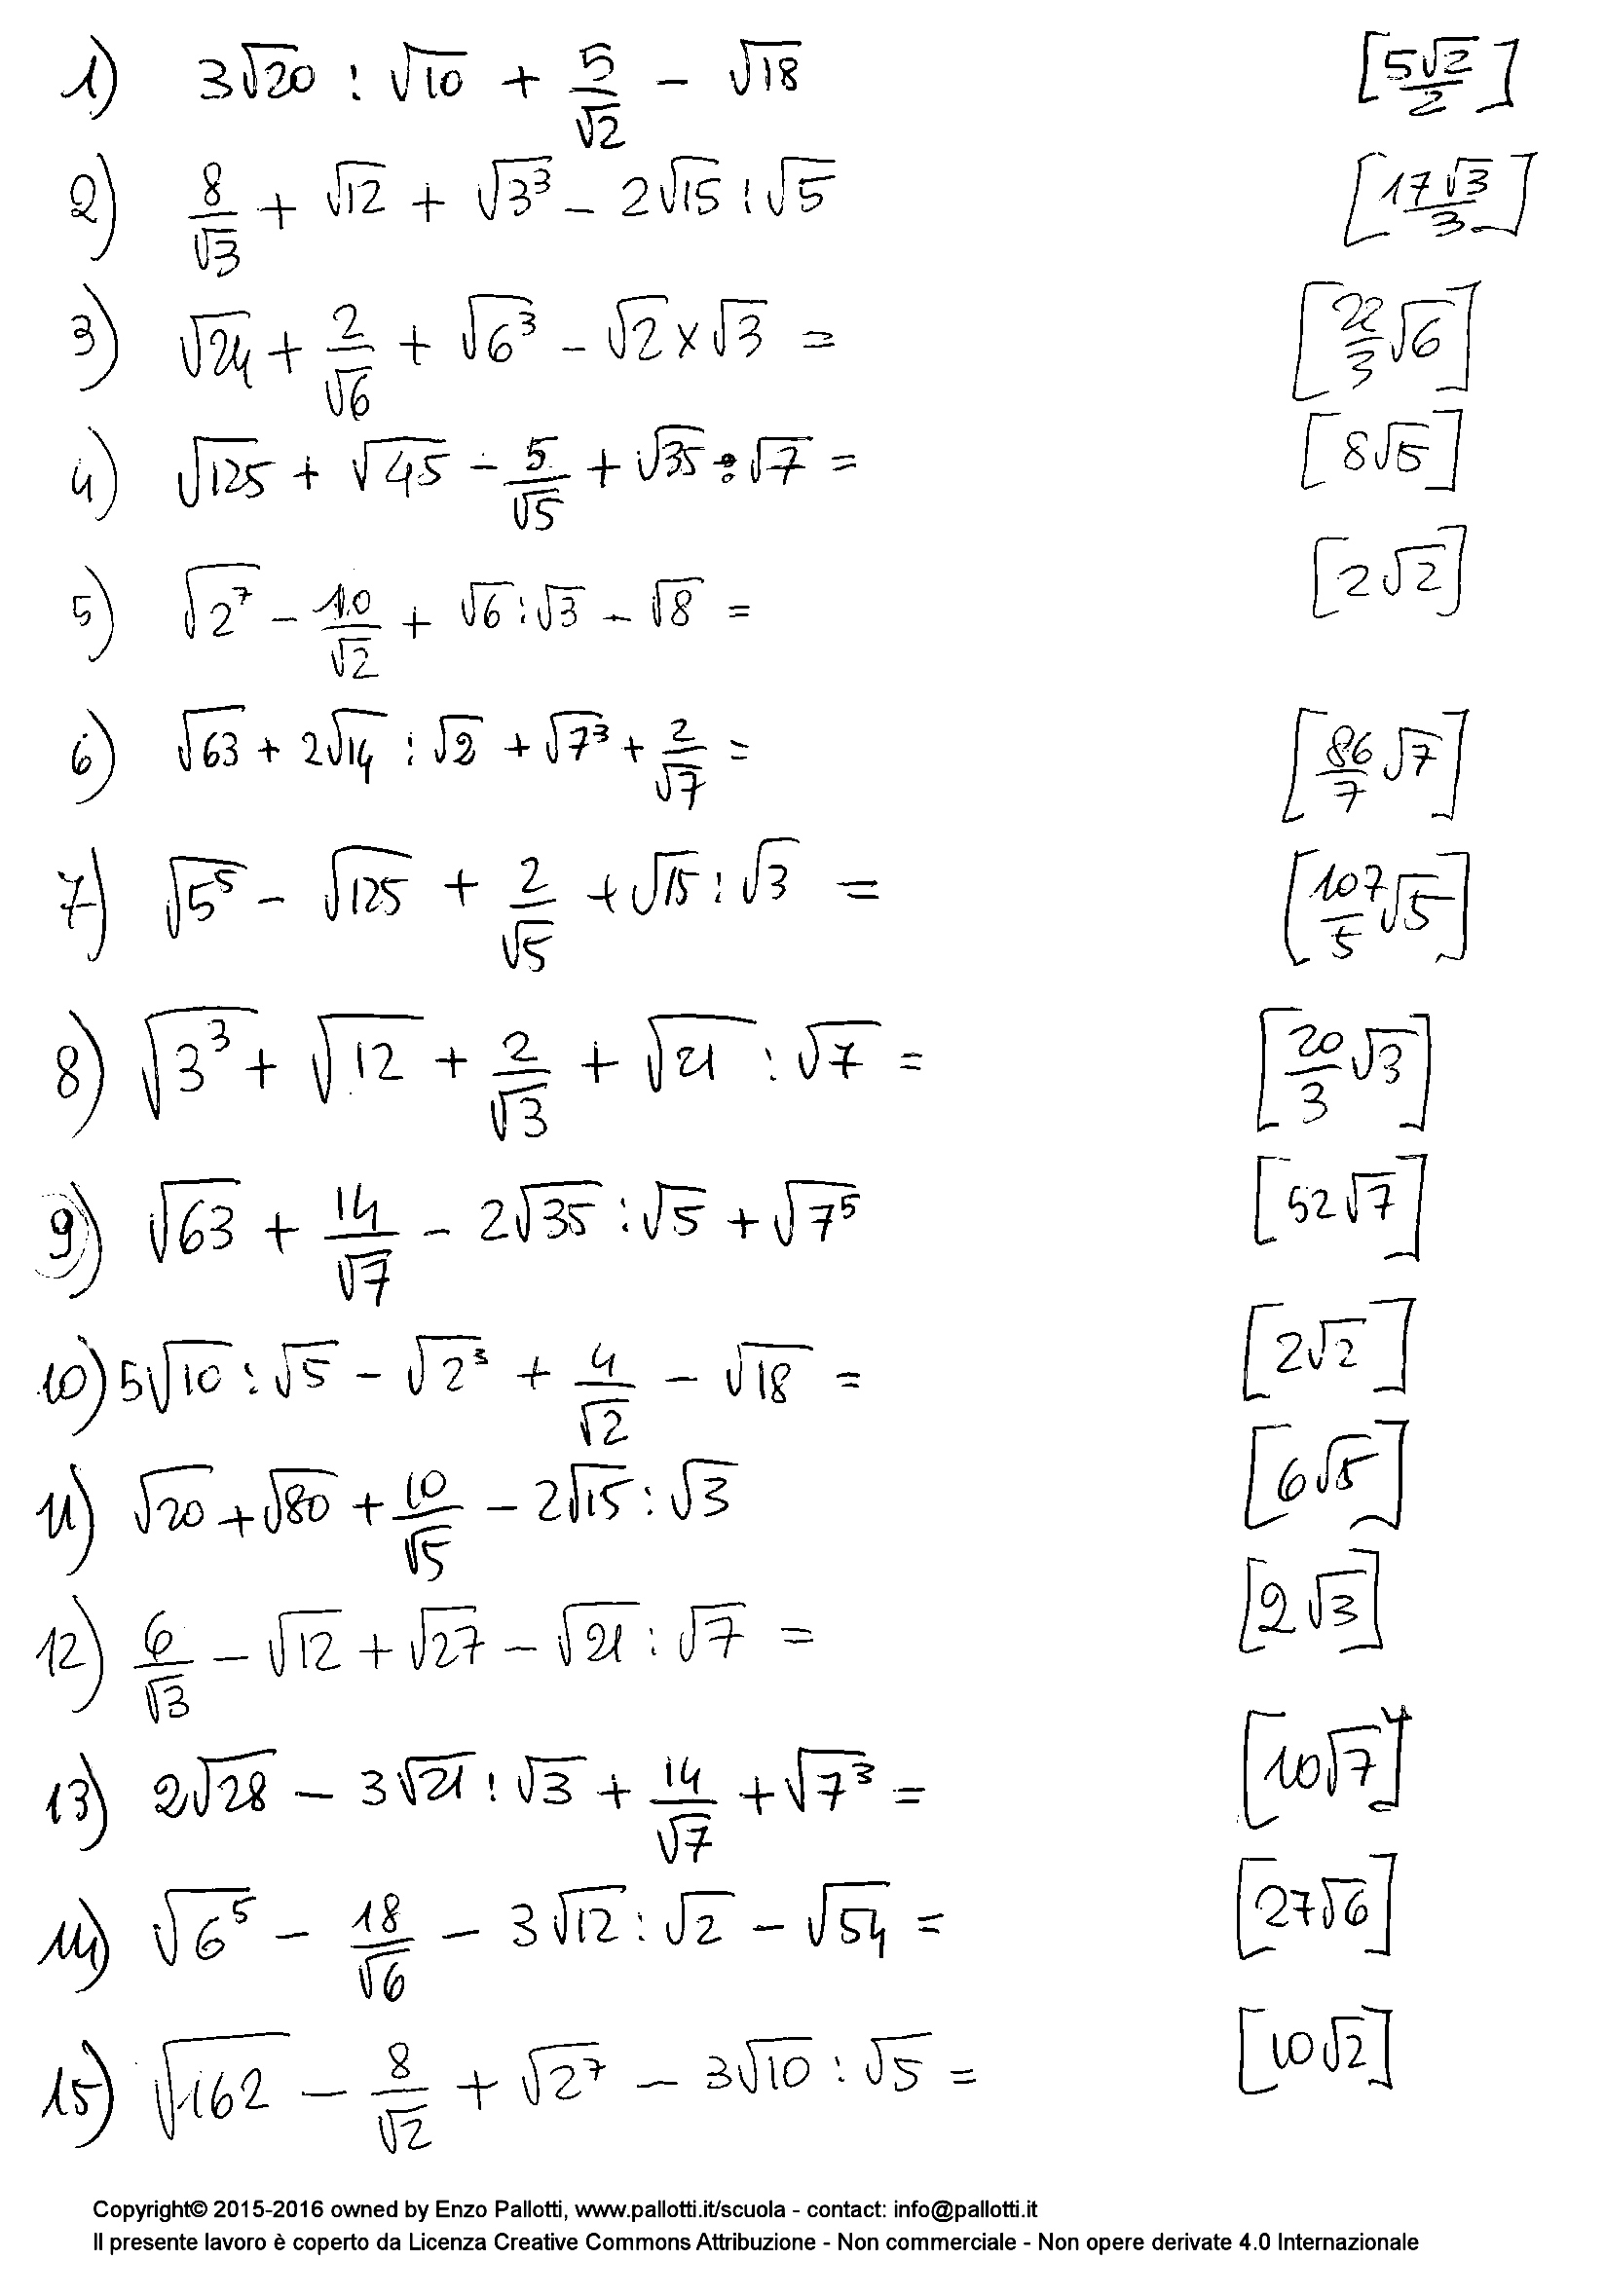 1) 3√20 : √10 + 5/√2 - √18 [5√2/2]
2) 8/√3 + √12 + √3³ - 2√15 : √5 [17√3/3]
3) √24 + 2/√6 + √6³ - √2 × √3 = [22/3 √6]
4) √125 + √45 - 5/√5 + √35 : √7 = [8√5]
5) √2⁷ - 10/√2 + √6 : √3 - √8 = [2√2]
6) √63 + 2√14 : √2 + √7³ + 2/√7 = [86/7 √7]
7) √5⁵ - √125 + 2/√5 + √15 : √3 = [107/5 √5]
8) √3³ + √12 + 2/√3 + √21 : √7 = [20/3 √3]
9) √63 + 14/√7 - 2√35 : √5 + √7⁵ [52√7]
10) 5√10 : √5 - √2³ + 4/√2 - √18 = [2√2]
11) √20 + √80 + 10/√5 - 2√15 : √3 [6√5]
12) 6/√3 - √12 + √27 - √21 : √7 = [2√3]
13) 2√28 - 3√21 : √3 + 14/√7 + √7³ = [10√7]
14) √6⁵ - 18/√6 - 3√12 : √2 - √54 = [27√6]
15) √162 - 8/√2 + √2⁷ - 3√10 : √5 = [10√2]
Copyright© 2015-2016 owned by Enzo Pallotti, www.pallotti.it/scuola - contact: info@pallotti.it
Il presente lavoro è coperto da Licenza Creative Commons Attribuzione - Non commerciale - Non opere derivate 4.0 Internazionale